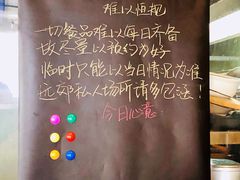 难以恒规
一切餐品难以每日齐备
故尽量以预约为好
临时只能以当日情况为准
远郊私人场所请多包涵！
今日心意